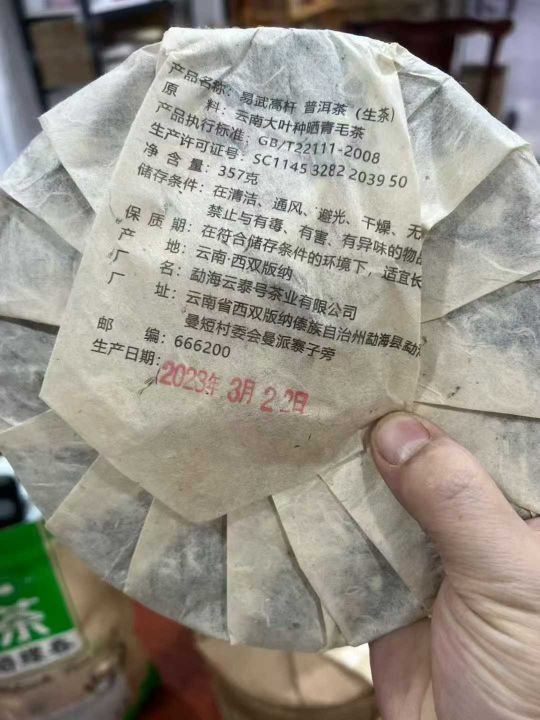 产品名称：易武高杆 普洱茶（生茶）
原　　料：云南大叶种晒青毛茶
产品执行标准：GB/T22111-2008
生产许可证号：SC1145 3282 2039 50
净 含 量：357克
储存条件：在清洁、通风、避光、干燥、无
禁止与有毒、有害、有异味的物品
保 质 期：在符合储存条件的环境下，适宜长
产　　地：云南·西双版纳
厂　　名：勐海云泰号茶业有限公司
厂　　址：云南省西双版纳傣族自治州勐海县勐海
曼短村委会曼派寨子旁
邮　　编：666200
生产日期：2023年 3月 22日
茶